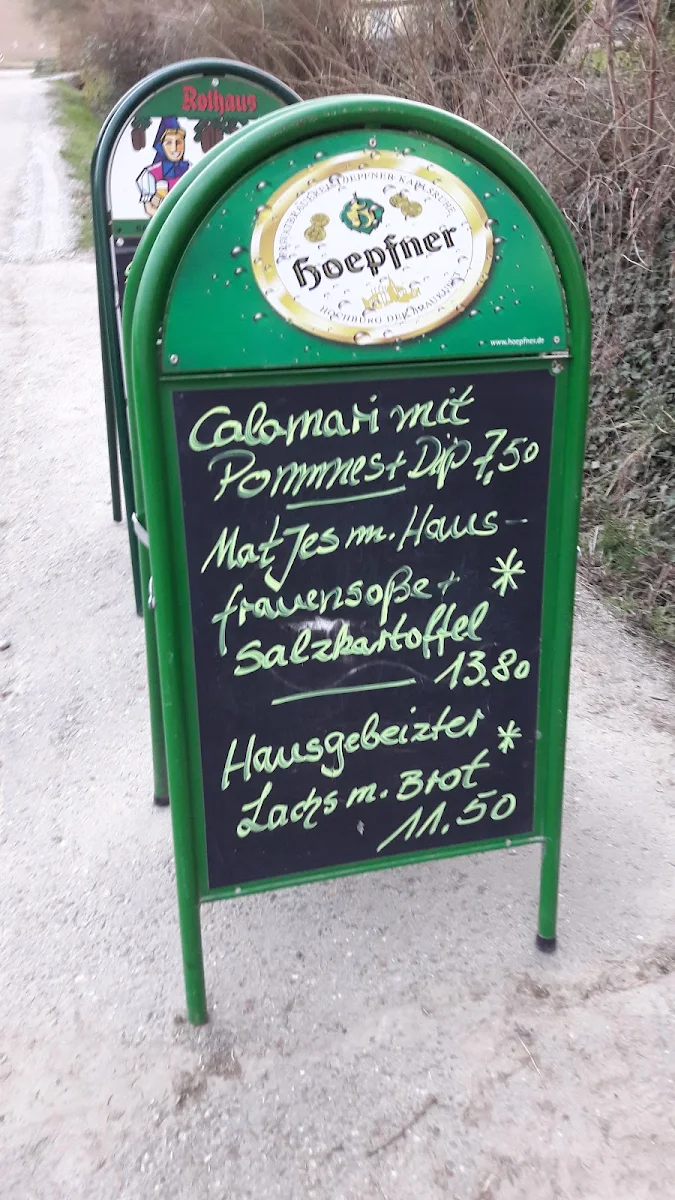 Rothaus
PRIVATBRAUEREI HOEPFNER KARLSRUHE
hoepfner
HOCHBURG DER BRAUKUNST
www.hoepfner.de
Calamari mit
Pommes + Dip 7,50
Matjes m. Haus-
frauensoße + *
Salzkartoffel
13.80
Hausgebeizter *
Lachs m. Brot
11.50